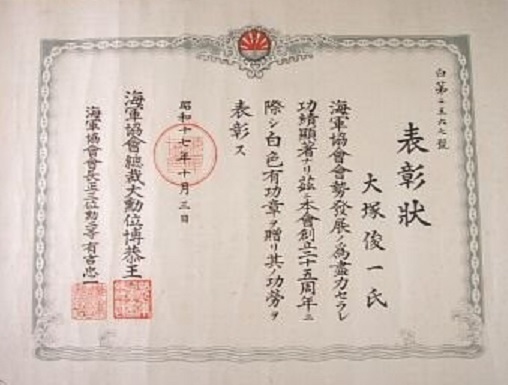 白第二五六七號
表彰狀
大塚俊一氏
海軍協會會勢發展ノ為盡力セラレ
功績顯著ナリ茲ニ本會創立二十五周年ニ
際シ白色有功章ヲ贈リ其ノ功勞ヲ
表彰ス
昭和十七年十月三日
海軍協會總裁大勳位博恭王
海軍協會會長正三位勳一等有吉忠一